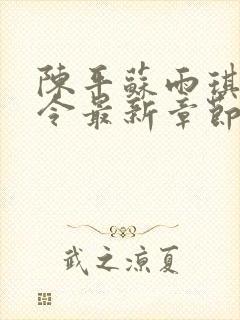 陳平蘇雨琪
令最新章節
武之涼夏